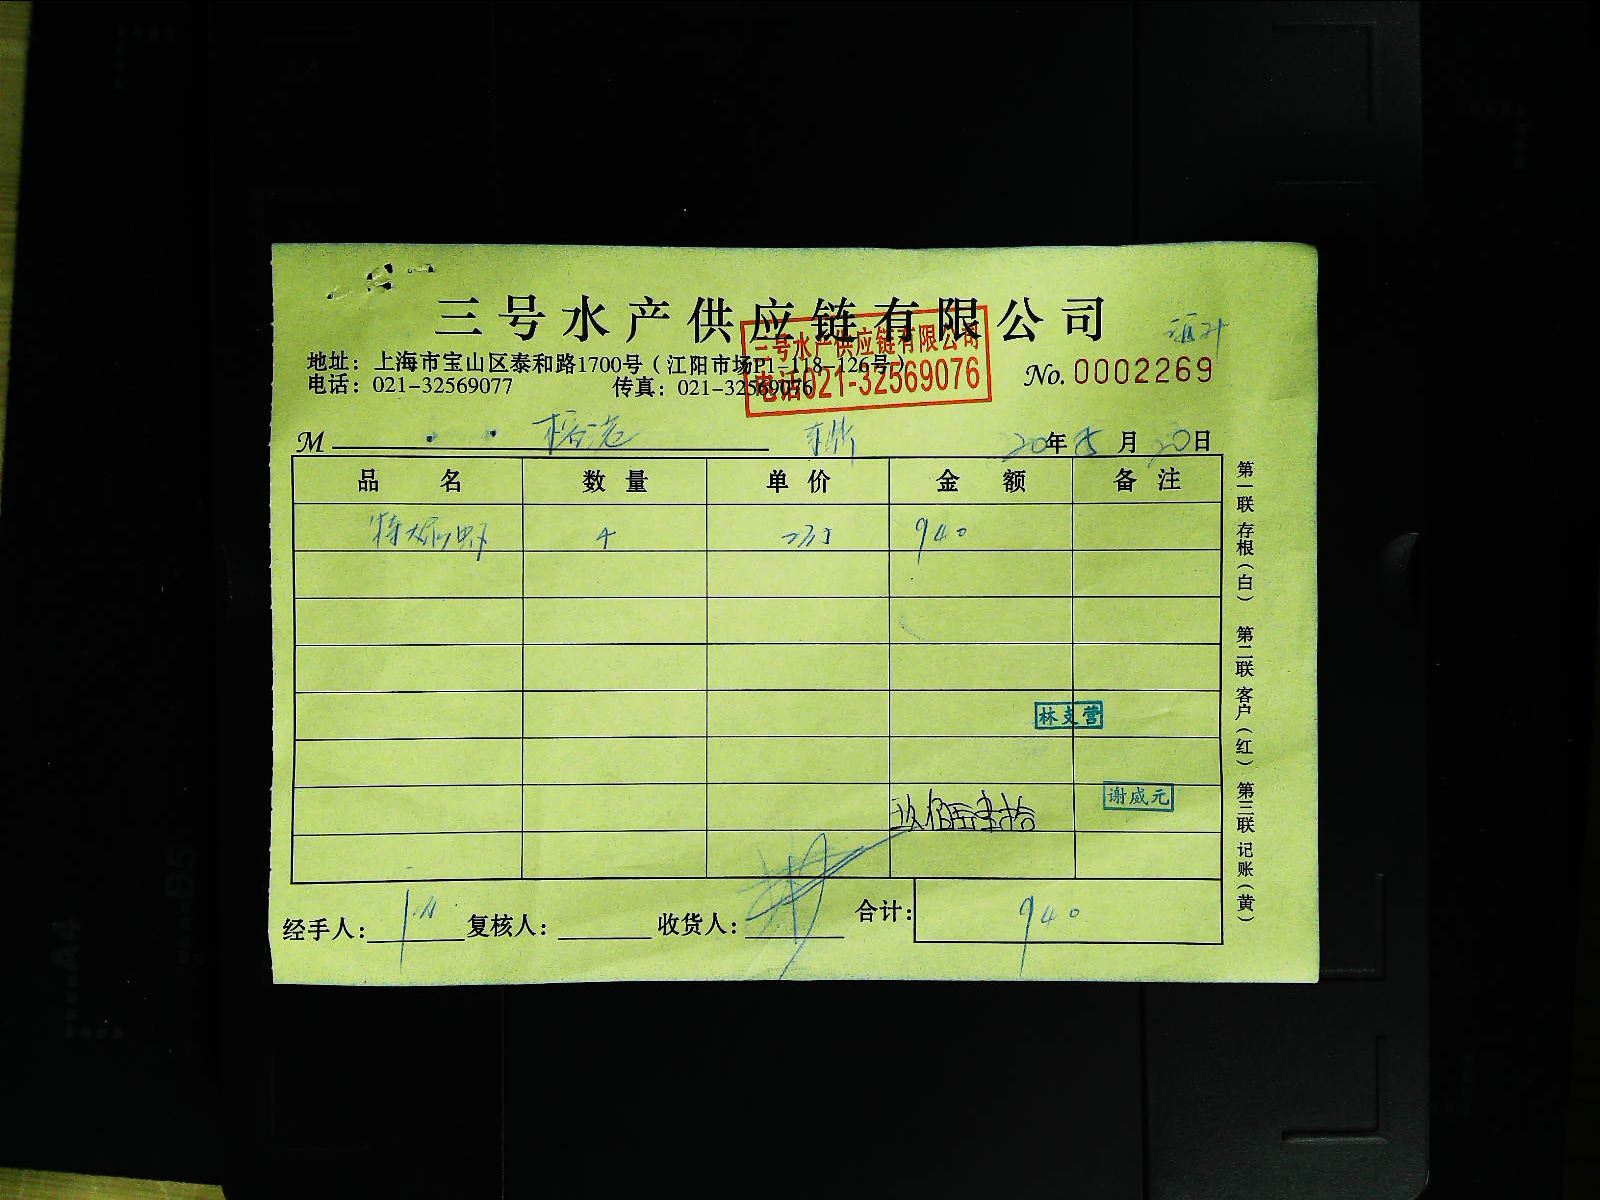 三号水产供应链有限公司
地址：上海市宝山区泰和路1700号（江阳市场P1-118-126号）
电话：021-32569077 传真：021-32569076
三号水产供应链有限公司
电话021-32569076
No. 0002269
M 20年 月20日
品名 数量 单价 金额 备注
4 235 940
林支营
谢威元
经手人： 复核人： 收货人： 合计： 940
第一联 存根（白） 第二联 客户（红） 第三联 记账（黄）
A4
B5